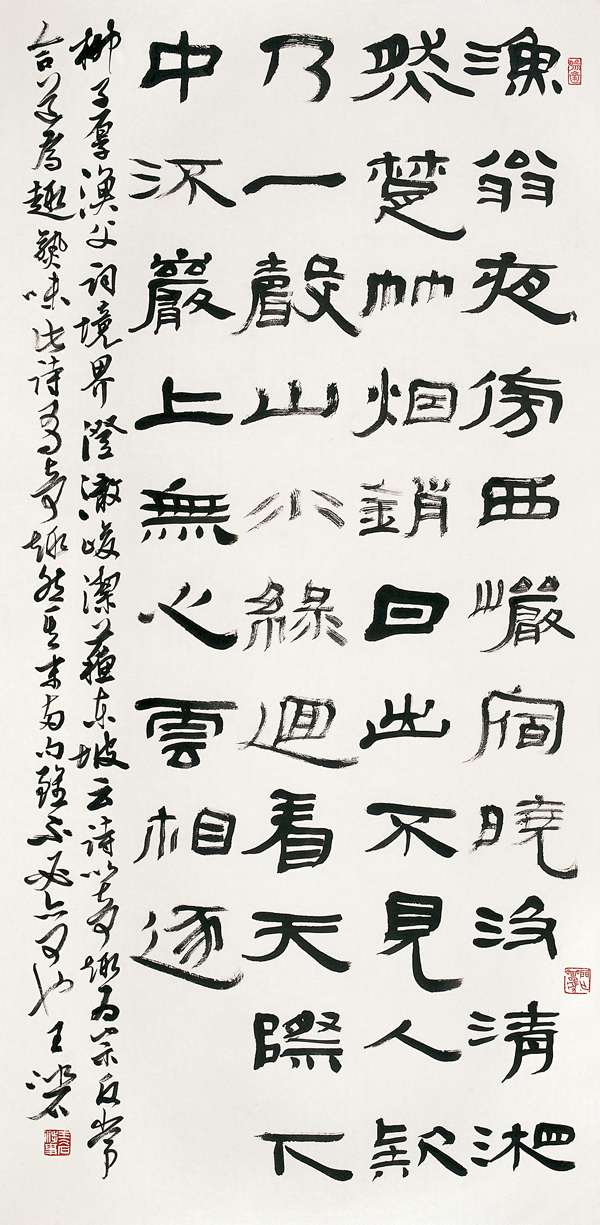 漁翁夜傍西巖宿曉汲清湘
然楚竹烟銷日出不見人欸
乃一聲山水緑迴看天際下
中流巖上無心雲相逐
柳子厚漁父詞境界澄澈峻潔蘇東坡云詩以奇趣為宗反常
合道為趣熟味此詩有奇趣然其末兩句雖不必亦可也王